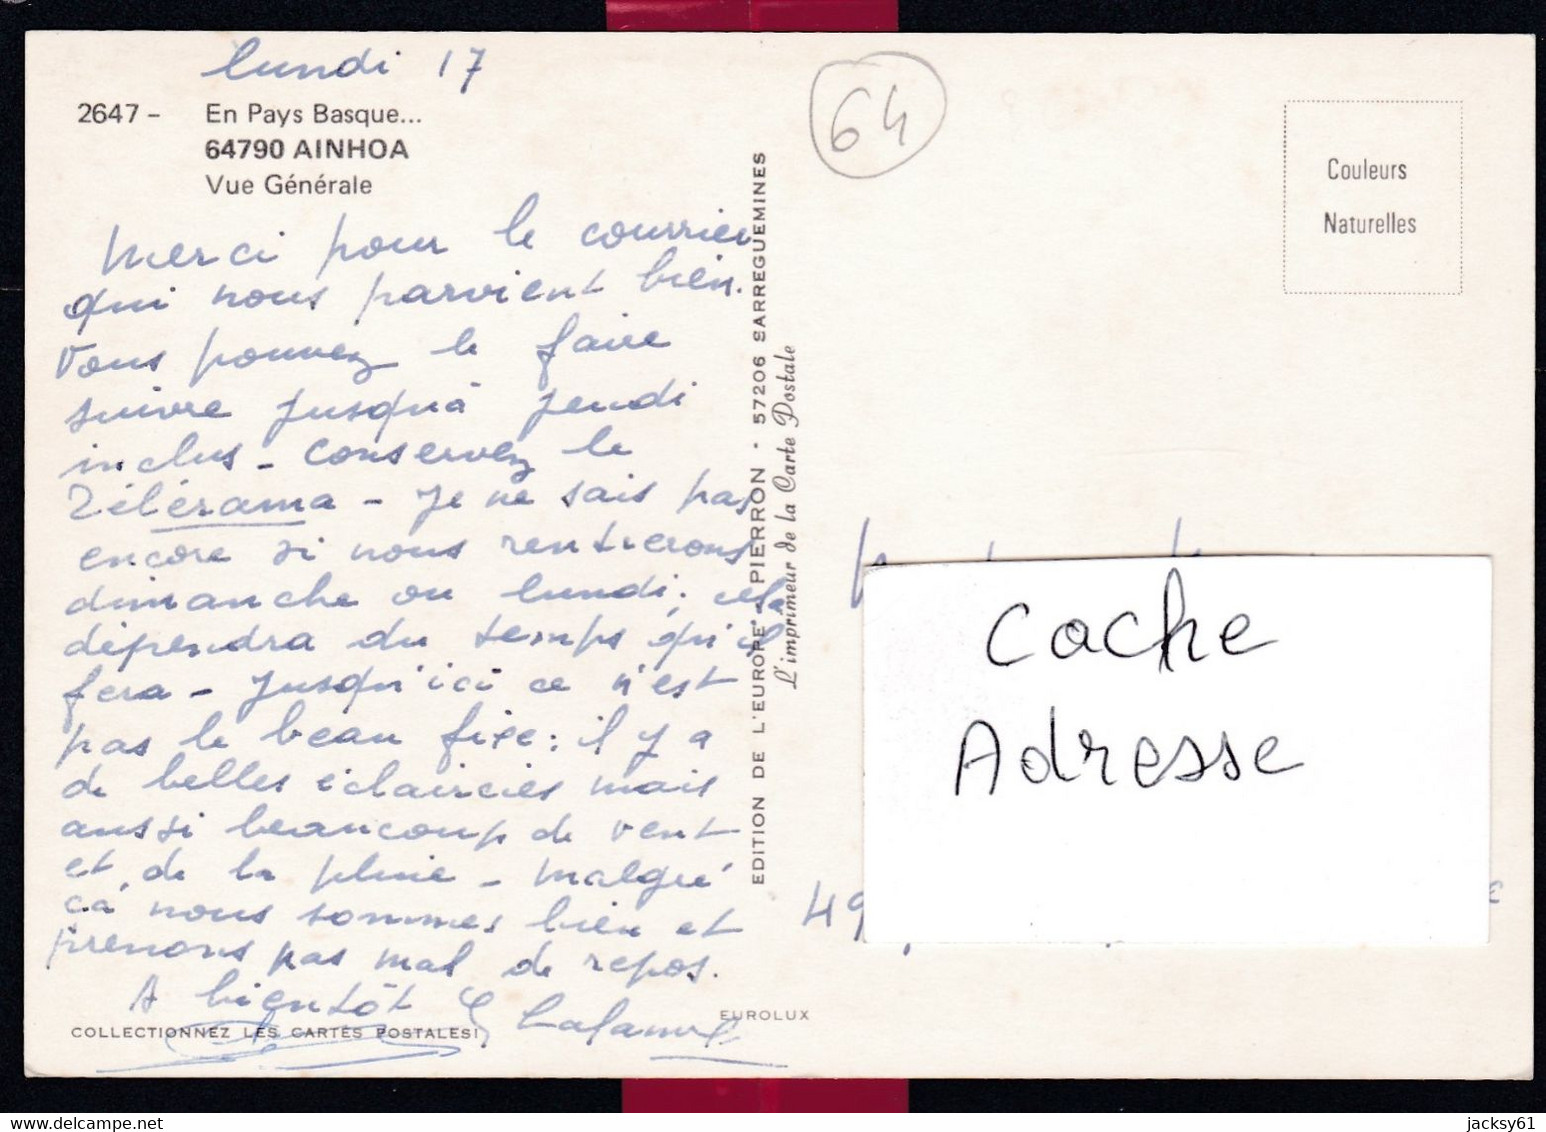 lundi 17
2647 - En Pays Basque...
64790 AINHOA
Vue Générale
Merci pour le courrier
qui nous parvient bien.
Vous pouvez le faire
suivre jusqu'à jeudi
inclus - Conservez le
Télérama - Je ne sais pas
encore si nous rentrerons
dimanche ou lundi; cela
dépendra du temps qu'il
fera - Jusqu'ici ce n'est
pas le beau fixe: il y a
de belles éclaircies mais
aussi beaucoup de vent
et de la pluie - malgré
ça nous sommes bien et
prenons pas mal de repos.
A bientôt
COLLECTIONNEZ LES CARTES POSTALES!
EDITION DE L'EUROPE - PIERRON - 57206 SARREGUEMINES
L'imprimeur de la Carte Postale
EUROLUX
64
Couleurs
Naturelles
Cache
Adresse
49
jacksy61